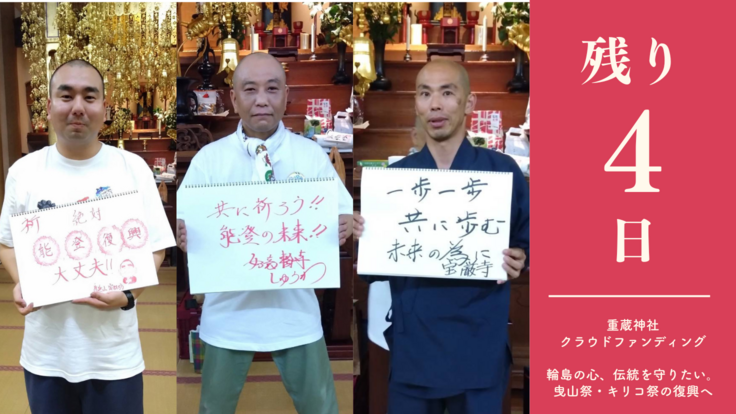 祈 絶対
能登復興
大丈夫!!
共に祈ろう!!
能登の未来!!
しゅうか
一歩一歩
共に歩む
未来の為に
宝厳寺
残り
4
日
重蔵神社
クラウドファンディング
輪島の心、伝統を守りたい。
曳山祭・キリコ祭の復興へ